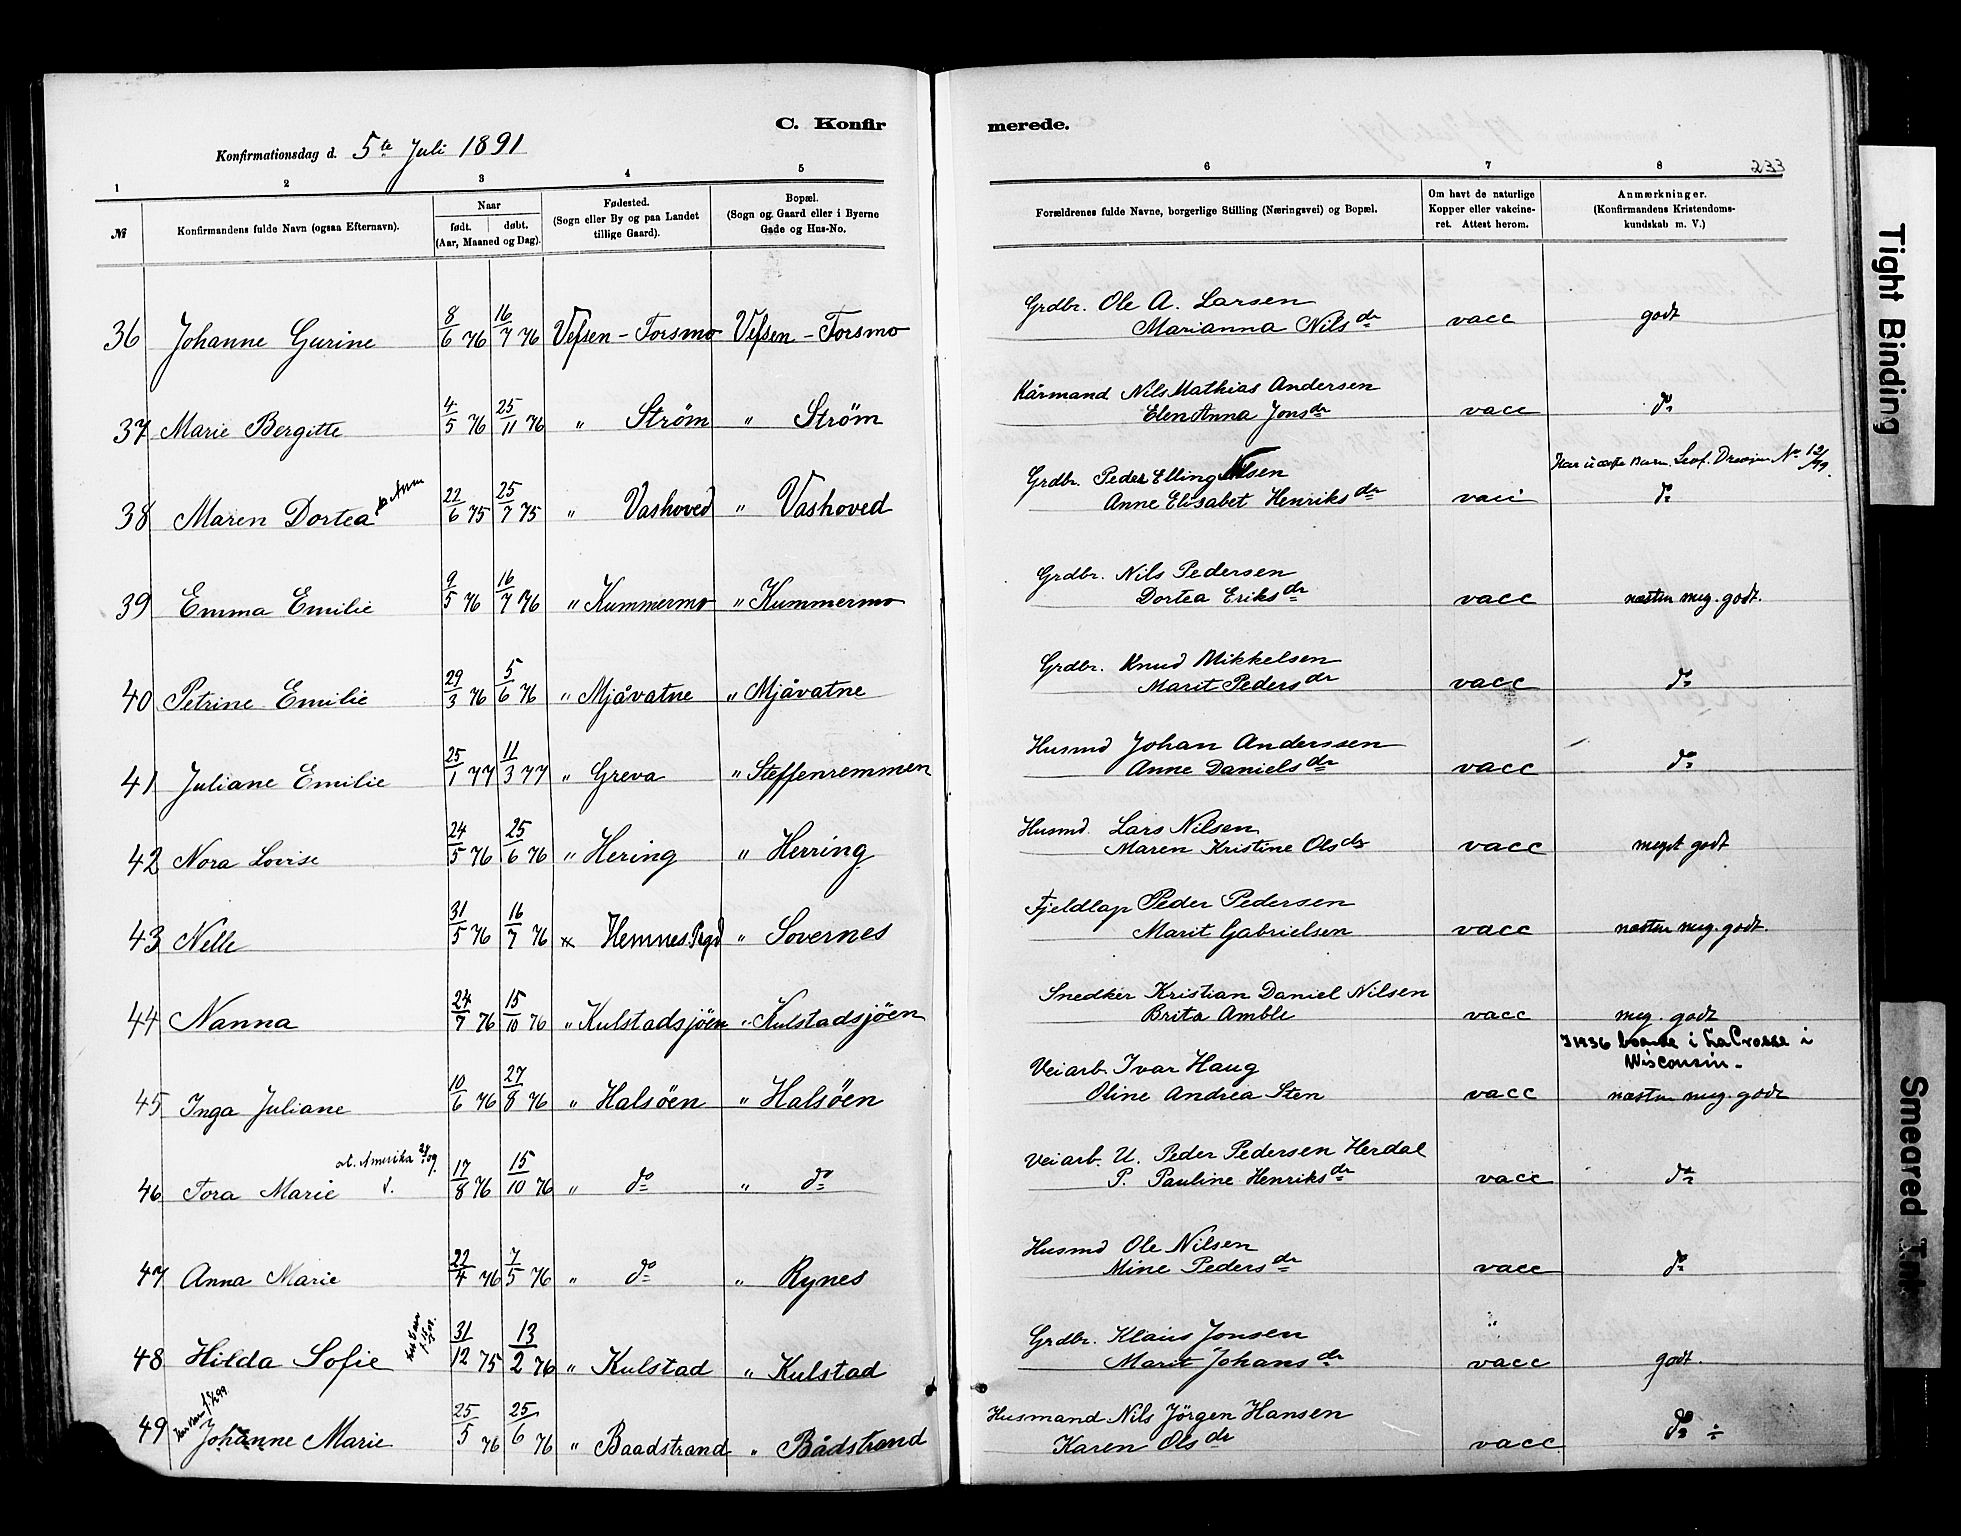 C. Konfirmerede.
Konfirmationsdag d. 5te Juli 1891
233
1 2 3 4 5 6 7 8
№
Konfirmandens fulde Navn (ogsaa Efternavn).
Naar
født. døbt.
(Aar, Maaned og Dag).
Fødested.
(Sogn eller By og paa Landet
tillige Gaard).
Bopæl.
(Sogn og Gaard eller i Byerne
Gade og Hus-No.
Forældrenes fulde Navne, borgerlige Stilling (Næringsvei) og Bopæl.
Om havt de naturlige
Kopper eller vakcine-
ret. Attest herom.
Anmærkninger.
(Konfirmandens Kristendoms-
kundskab m. V.)
36 Johanne Gurine 8/6 76 16/7 76 Vefsen - Forsmo Vefsen - Forsmo Grdbr. Ole A. Larsen
Marianna Nilsdr vacc godt
37 Marie Bergitte 4/5 76 25/11 76 " Strøm " Strøm Kårmand Nils Mathias Andersen
Elen Anna Jonsdr vacc do
38 Maren Dortea 22/6 75 25/7 75 " Vashoved " Vashoved Grdbr. Peder Elling Nilsen
Anne Elisabet Henriksdr vacc do
39 Emma Emilie 9/5 76 16/7 76 " Kummermo " Kummermo Grdbr. Nils Pedersen
Dortea Eriksdr vacc næsten meg. godt.
40 Petrine Emilie 29/3 76 5/6 76 " Mjåvatne " Mjåvatne Grdbr. Knud Mikkelsen
Marit Pedersdr vacc do
41 Juliane Emilie 25/1 77 11/3 77 " Greva " Steffenremmen Husmd Johan Anderssen
Anne Danielsdr vacc do
42 Nora Lovise 24/5 76 25/6 76 " Hering " Herring Husmd. Lars Nilsen
Maren Kristine Olsdr vacc meget godt
43 Nelle 31/5 76 16/7 76 Hemnes Prgd " Sovernes Fjeldlap Peder Pedersen
Marit Gabrielsen vacc næsten meg. godt.
44 Nanna 24/7 76 15/10 76 " Kulstadsjöen " Kulstadsjöen Snedker Kristian Daniel Nilsen
Brita Amble vacc meg. godt
I 1936 boende i La Crosse i
Wisconsin -
45 Inga Juliane 10/6 76 27/8 76 " Halsöen " Halsöen Veiarb Ivar Haug
Oline Andrea Sten vacc næsten meg. godt
46 Tora Marie 17/8 76 15/10 76 " do " do Veiarb. U. Peder Pedersen Herdal
P. Pauline Henriksdr vacc do
47 Anna Marie 22/4 76 7/5 76 " do " Rynes Husmd Ole Nilsen
Mine Pedersdr vacc do
48 Hilda Sofie 31/12 75 13/2 76 " Kulstad " Kulstad Grdbr. Klaus Jonsen
Marit Johansdr vacc godt.
49 Johanne Marie 25/5 76 25/6 76 " Baadstrand " Bådstrand Husmand Nils Jörgen Hansen
Karen Olsdr vacc do ÷
Tight Binding
Smeared Ink